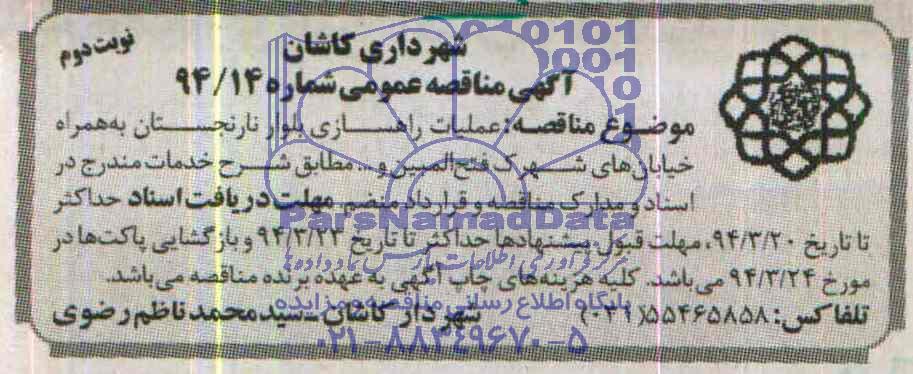 نوبت دوم
شهرداری کاشان
آگهی مناقصه عمومی شماره ۹۴/۱۴
موضوع مناقصه: عملیات راهسازی بلوار نارنجستان به‌همراه
خیابان‌های شهرک فتح‌المبین و... مطابق شرح خدمات مندرج در
اسناد و مدارک مناقصه و قرارداد منضم. مهلت دریافت اسناد حداکثر
تا تاریخ ۹۴/۳/۲۰، مهلت قبول پیشنهادها حداکثر تا تاریخ ۹۴/۳/۲۳ و بازگشایی پاکت‌ها در
مورخ ۹۴/۳/۲۴ می‌باشد. کلیه هزینه‌های چاپ آگهی به عهده برنده مناقصه می‌باشد.
تلفاکس: ۵۵۴۶۵۸۵۸(۰۳۱)
شهردار کاشان – سیدمحمد ناظم رضوی
ParsNamadData
پایگاه اطلاع رسانی مناقصه و مزایده
۰۲۱-۸۸۳۴۹۶۷۰-۵